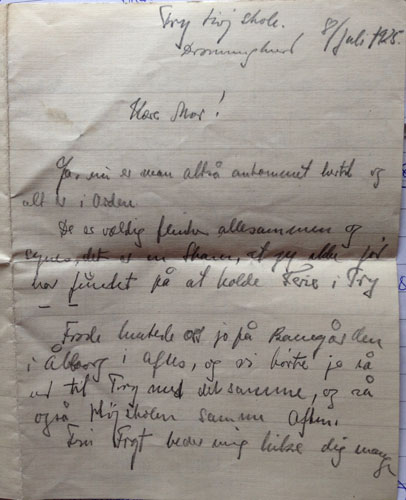 Try Højskole.
Dronninglund 8/Juli 1925.
Kære Mor!
Ja, nu er man altså ankommet hertil og
alt er i Orden.
De er vældig flinke allesammen og
synes, det er en Skam, at jeg ikke før
har fundet på at holde Ferie i Try
Frode hentede os jo på Banegården
i Ålborg i Aftes, og vi kørte jo så
ud til Try med det samme, og så
også Højskolen samme Aften.
Frygt beder mig hilse dig mange